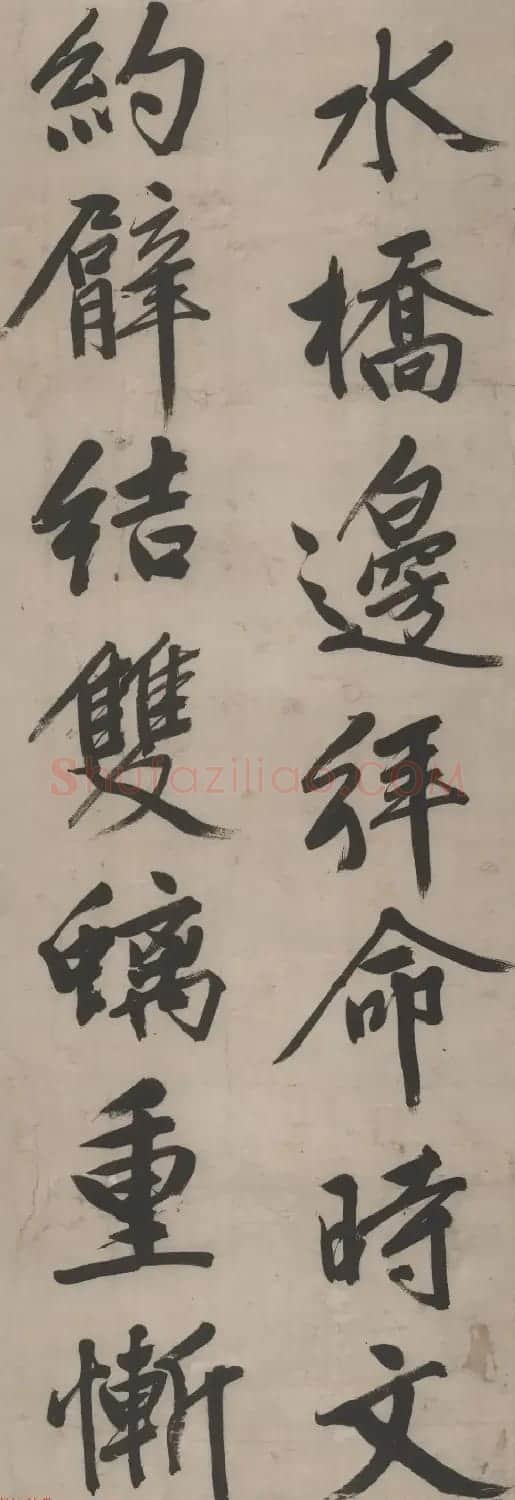 水橋邊拜命時文
約臂結雙螭重慚
Shufaziliao.COM